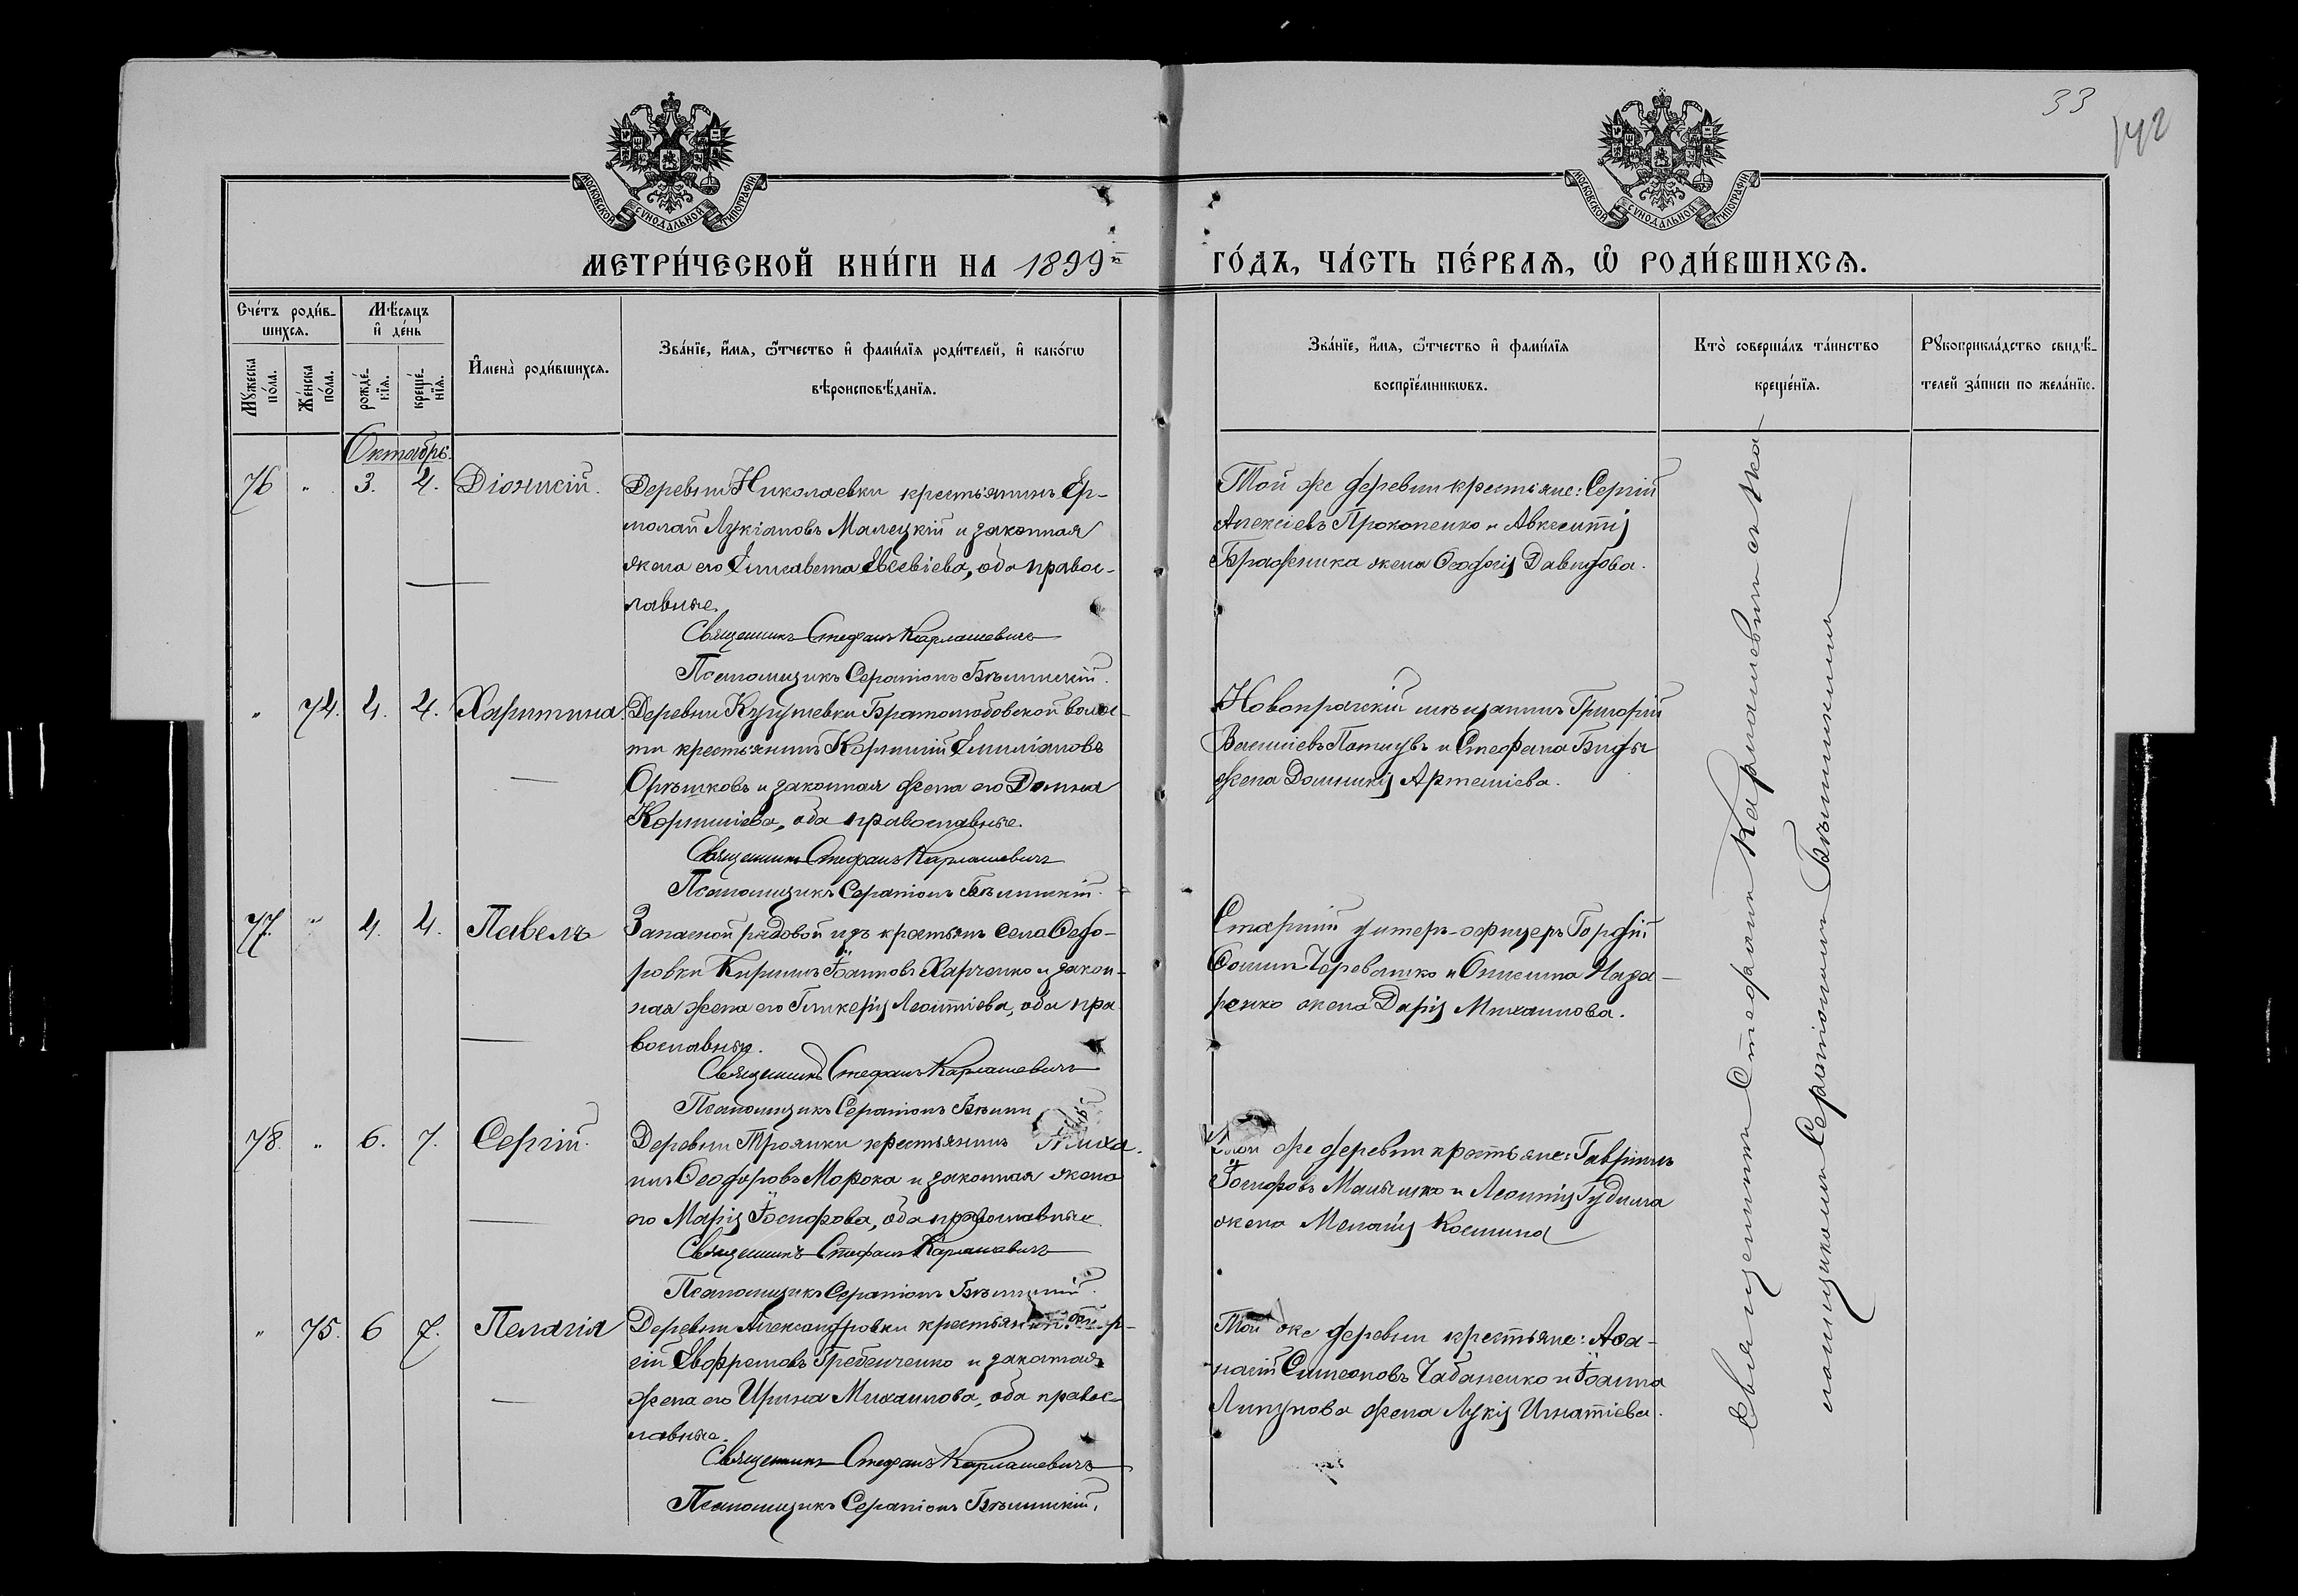 33
142
МОСКОВСКОЙ СѴНОДАЛЬНОЙ ТИПОГРАФІИ
МОСКОВСКОЙ СѴНОДАЛЬНОЙ ТИПОГРАФІИ
МЕТРИ́ЧЕСКОЙ КНИ́ГИ НА 1899й
ГО́ДЪ, ЧА́СТЬ ПЕ́РВАѦ, Ѿ РОДИ́ВШИХСѦ.
Сче́тъ роди́в-
шихсѧ.
Мѣ́сяцъ
и҆ де́нь
Мꙋ́жеска по́ла.
Же́нска по́ла.
рожде́-нїѧ.
креще́-нїѧ.
И҆мена̀ роди́вшихсѧ.
Зва́нїе, и҆́мѧ, ѻ҆́тчество и҆ фами́лїѧ роди́телей, и҆ како́гѡ
вѣроисповѣ́данїѧ.
Зва́нїе, и҆́мѧ, ѻ҆́тчество и҆ фами́лїѧ
воспрїе́мникѡвъ.
Кто̀ соверша́лъ та́инство
креще́нїѧ.
Рꙋкоприкла́дство свидѣ́-
телей за́писи по жела́нїю.
Октябрь.
76 " 3. 4. Діонисій. Деревни Николаевки крестьянинъ Ер-
молай Лукіановъ Малецкій и законная
жена его Елисавета Евсевіева, оба правос-
лавные.
Священникъ Стефанъ Карлашевичъ
Псаломщикъ Серапіонъ Бѣлинскій.
Той же деревни крестьяне: Сергій
Алексіевъ Прокопенко и Авксентія
Бражника жена Ѳеодосія Давидова.
" 74. 4. 4. Харитина. Деревни Братолюбовской волос-
ти крестьянинъ Корнилій Емиліановъ
Орѣшковъ и законная жена его Домна
Корниліева, оба православные.
Священникъ Стефанъ Карлашевичъ
Псаломщикъ Серапіонъ Бѣлинскій.
Новопражскій мѣщанинъ Григорій
Василіевъ и Стефана
жена Домникія Артеміева.
77. " 4. 4. Павелъ Запасной рядовой изъ крестьянъ села Ѳедо-
ровки Кириллъ Іоанновъ Харченко и закон-
ная жена его Гликерія Леонтіева, оба пра-
вославные.
Священникъ Стефанъ Карлашевичъ
Псаломщикъ Серапіонъ Бѣлин
Старшій унтеръ-офицеръ Гордій
Ѳоминъ Черевашко и Онисима Наза-
ренко жена Дарія Михаилова.
78. " 6. 7. Сергій. Деревни Троянки крестьянинъ Миха-
илъ Ѳеодоровъ Морока и законная жена
его Марія Іосифова, оба православные
Священникъ Стефанъ Карлашевичъ
Псаломщикъ Серапіонъ Бѣлинскій.
Той же деревни крестьяне: Гавріилъ
Іосифовъ и Леонтія Гудима
жена Меланія Космина
" 75. 6 7. Пелагія Деревни Александровки крестьянинъ
гій Евфремовъ Гребенченко и законная
жена его Ирина Михаилова, оба правос-
лавные.
Священникъ Стефанъ Карлашевичъ
Псаломщикъ Серапіонъ Бѣлинскій.
Той же деревни крестьяне: Аѳа-
насій Симеоновъ Чабаненко и Іоанна
жена Лукія Игнатіева.
Священникъ Стефанъ Карлашевичъ съ пса-
ломщикомъ Серапіономъ Бѣлинскимъ